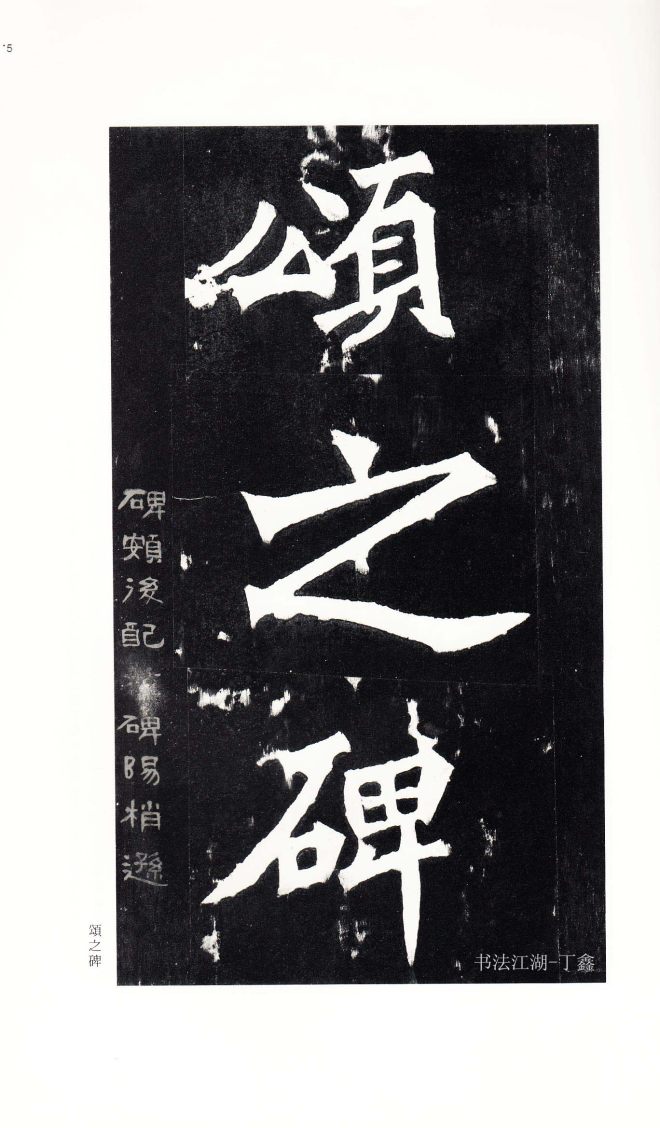 5
頌
之
碑
碑頞後配 碑陽梢遜
頌之碑
书法江湖-丁鑫